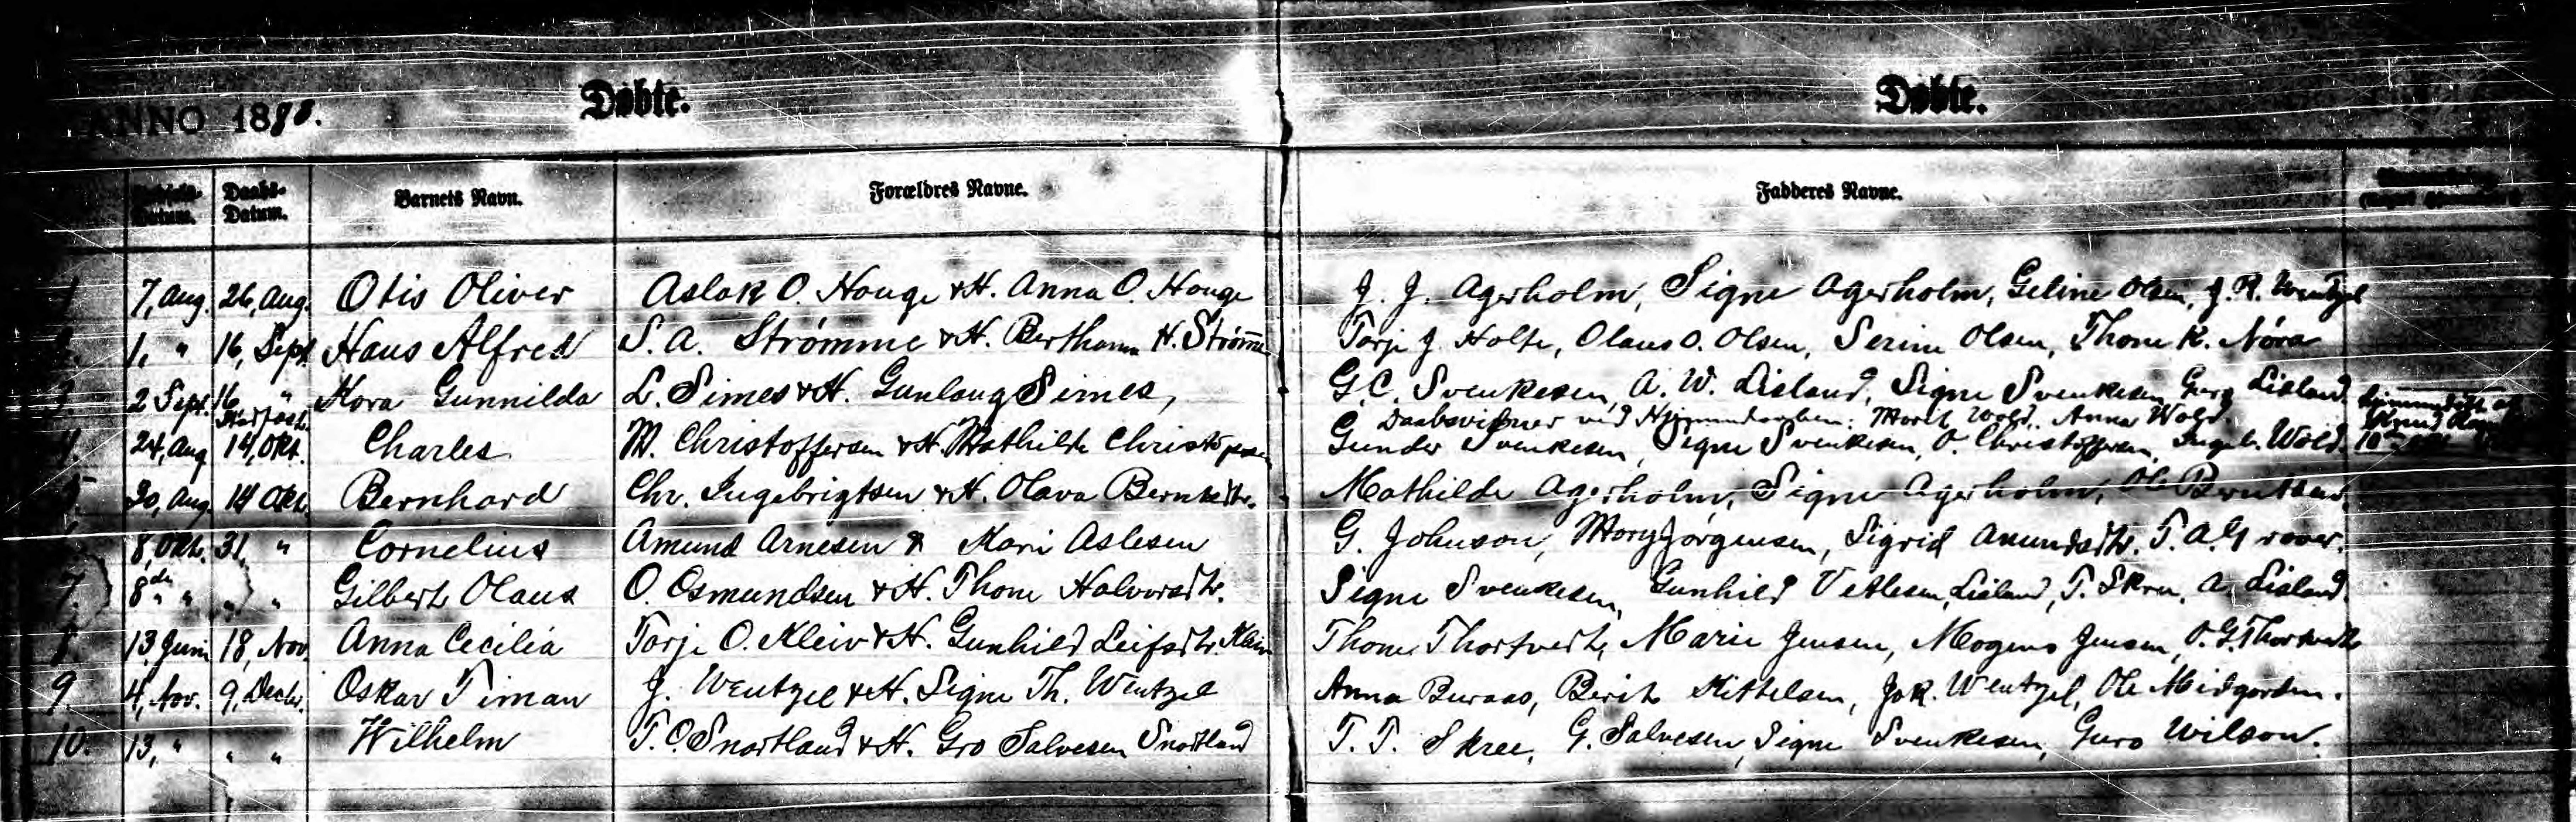 ANNO 18
Døbte. Døbte.
Datum. Daabs-Datum. Barnets Navn. Forældres Navne. Fadderes Navne.
7, Aug. 26, Aug. Otis Oliver Aslak O. Houge & H. Anna O. Houge J. J. Agerholm, Signe Agerholm, Geline Olsen, J. R. Wentzel
1, " 16, Sept. Hans Alfred S. A. Strømme & H. Berthe H. Strømme Torje J. Holte, Olaus O. Olsen, Serine Olsen, Thone K.
3. 2 Sept. 16 " Kora Gunnilda L. Simes & H. Gunlaug Simes, G. C. Svenkesen, A. W. Lisland, Signe Svenkesen, Guro Lisland.
Daabsvidner ved Hjemmedaaben: Marit Wold, Anna Wold.
4. 24, Aug 14, Okt. Charles M. Christoffersen & H. Mathilde Gunder Svenkesen, Signe Svenkesen, O. Christoffersen, Ingeb. Wold.
5. 30, Aug. 14 Okt. Bernhard Chr. Ingebrigtsen & H. Olava Mathilde Agerholm, Signe Agerholm, Ole
8, Okt. 31, " Cornelius Amund Arnesen & Kari Aslesen G. Johnson, Mary Jørgensen, Sigrid Amundsdtr. T. A. Grover.
7. 8de " " " Gilbert Olaus O. Osmundsen & H. Thone Halvorsdtr. Signe Svenkesen, Gunhild Vetlesen, Lisland, T. Skree, A. Lisland.
8. 13, Juni 18, Nov. Anna Cecilia Torje O. Kleiv & H. Gunhild Leifsdtr. Kleiv Thone Thortvedt, Marie Jensen, Mogens Jensen, O. G. Thortvedt
9. 4, Nov. 9, Decbr. Oskar Timan J. Wentzel & H. Signe Th. Wentzel Anna Buraas, Berit Kittelsen, Jok. Wentzel, Ole Midgarden.
10. 13, " " " Wilhelm T. O. Snortland & H. Gro Salvesen Snortland T. T. Skree, G. Salvesen, Signe Svenkesen, Guro Wilson.